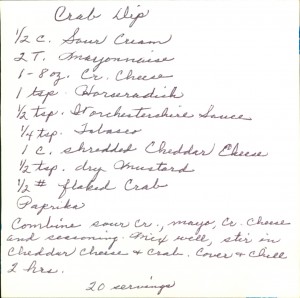 Crab Dip
1/2 c. Sour Cream
2 T. Mayonnaise
1-8 oz. Cr. Cheese
1 tsp. Horseradish
1/2 tsp. Worchestershire Sauce
1/4 tsp. Tabasco
1 c. shredded Cheddar Cheese
1/2 tsp. dry Mustard
1/2 # flaked Crab
Paprika
Combine sour cr., mayo, Cr. Cheese
and seasoning. Mix well, stir in
Cheddar Cheese & crab. Cover & Chill
2 hrs.
20 servings